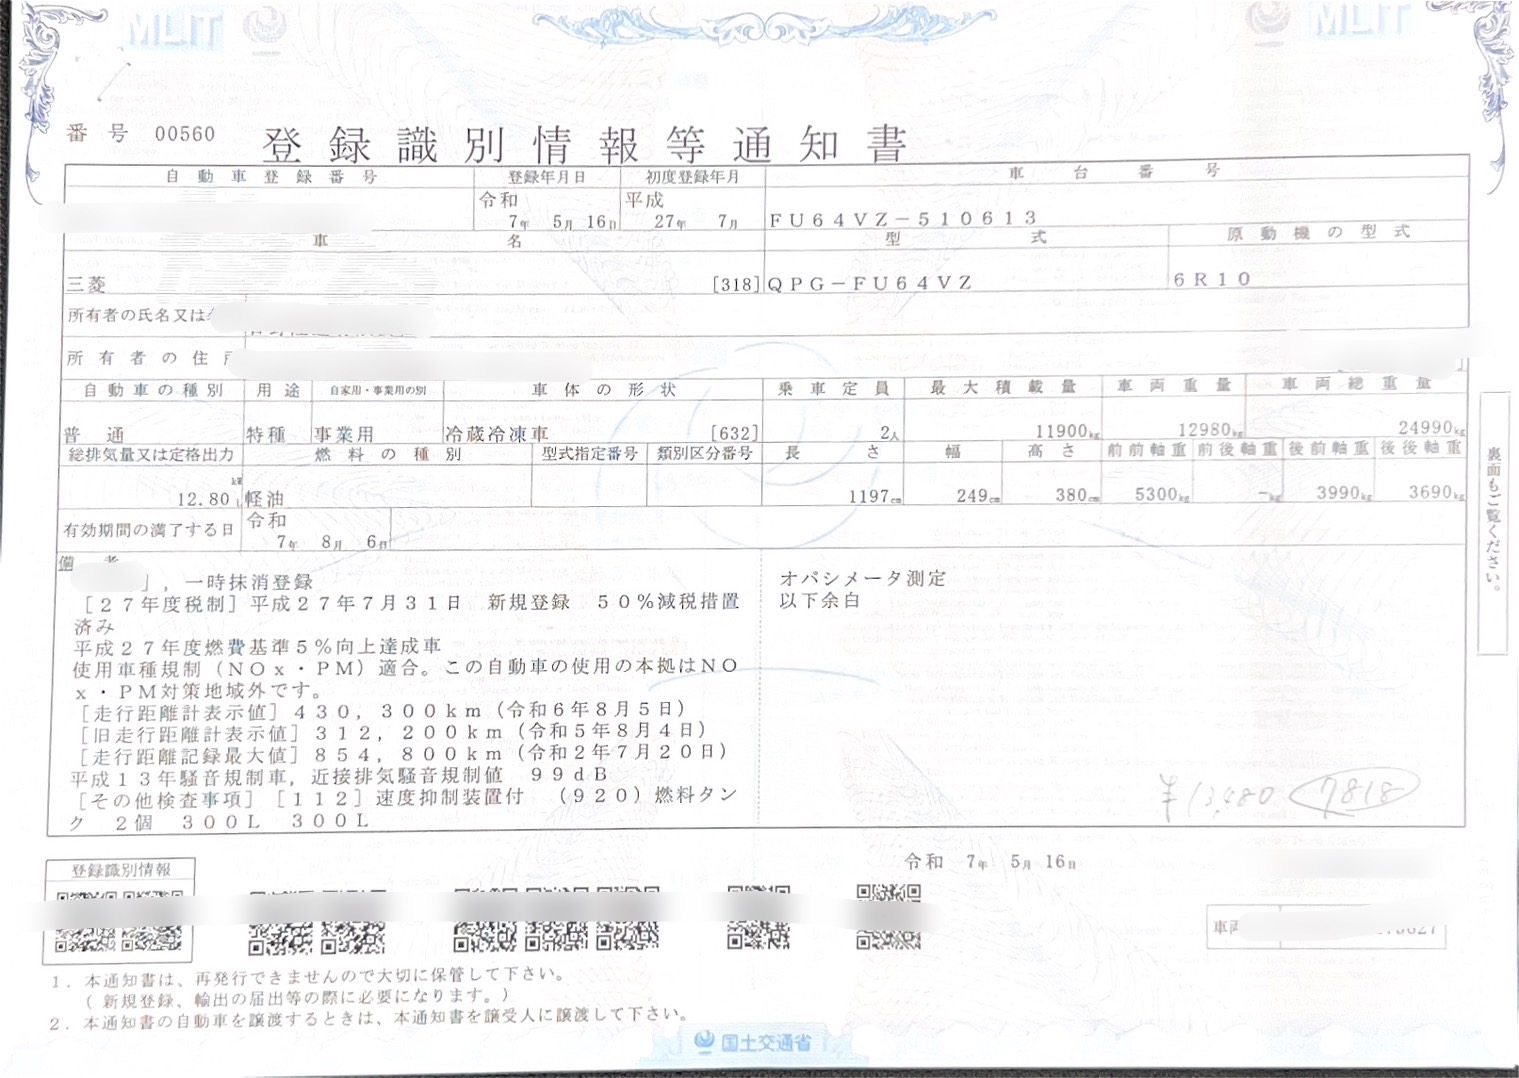 MLIT
MLIT
番号 00560
登録識別情報等通知書
自動車登録番号
登録年月日
初度登録年月
車台番号
令和
7年 5月 16日
平成
27年 7月
FU64VZ-510613
車名
型式
原動機の型式
三菱
[318]
QPG-FU64VZ
6R10
所有者の氏名又は
所有者の住
自動車の種別
用途
自家用・事業用の別
車体の形状
乗車定員
最大積載量
車両重量
車両総重量
普通
特種
事業用
冷蔵冷凍車
[632]
2人
11900kg
12980kg
24990kg
総排気量又は定格出力
燃料の種別
型式指定番号
類別区分番号
長さ
幅
高さ
前前軸重
前後軸重
後前軸重
後後軸重
kW
12.80 L
軽油
1197cm
249cm
380cm
5300kg
-kg
3990kg
3690kg
有効期間の満了する日
令和
7年 8月 6日
備考
],一時抹消登録
[27年度税制]平成27年7月31日 新規登録 50%減税措置
済み
平成27年度燃費基準5%向上達成車
使用車種規制(NOx・PM)適合。この自動車の使用の本拠はNO
x・PM対策地域外です。
[走行距離計表示値]430,300km(令和6年8月5日)
[旧走行距離計表示値]312,200km(令和5年8月4日)
[走行距離記録最大値]854,800km(令和2年7月20日)
平成13年騒音規制車,近接排気騒音規制値 99dB
[その他検査事項][112]速度抑制装置付 (920)燃料タン
ク 2個 300L 300L
オパシメータ測定
以下余白
¥13,480 7818
裏面もご覧ください。
令和 7年 5月 16日
登録識別情報
車両
1.本通知書は、再発行できませんので大切に保管して下さい。
(新規登録、輸出の届出等の際に必要になります。)
2.本通知書の自動車を譲渡するときは、本通知書を譲受人に譲渡して下さい。
国土交通省